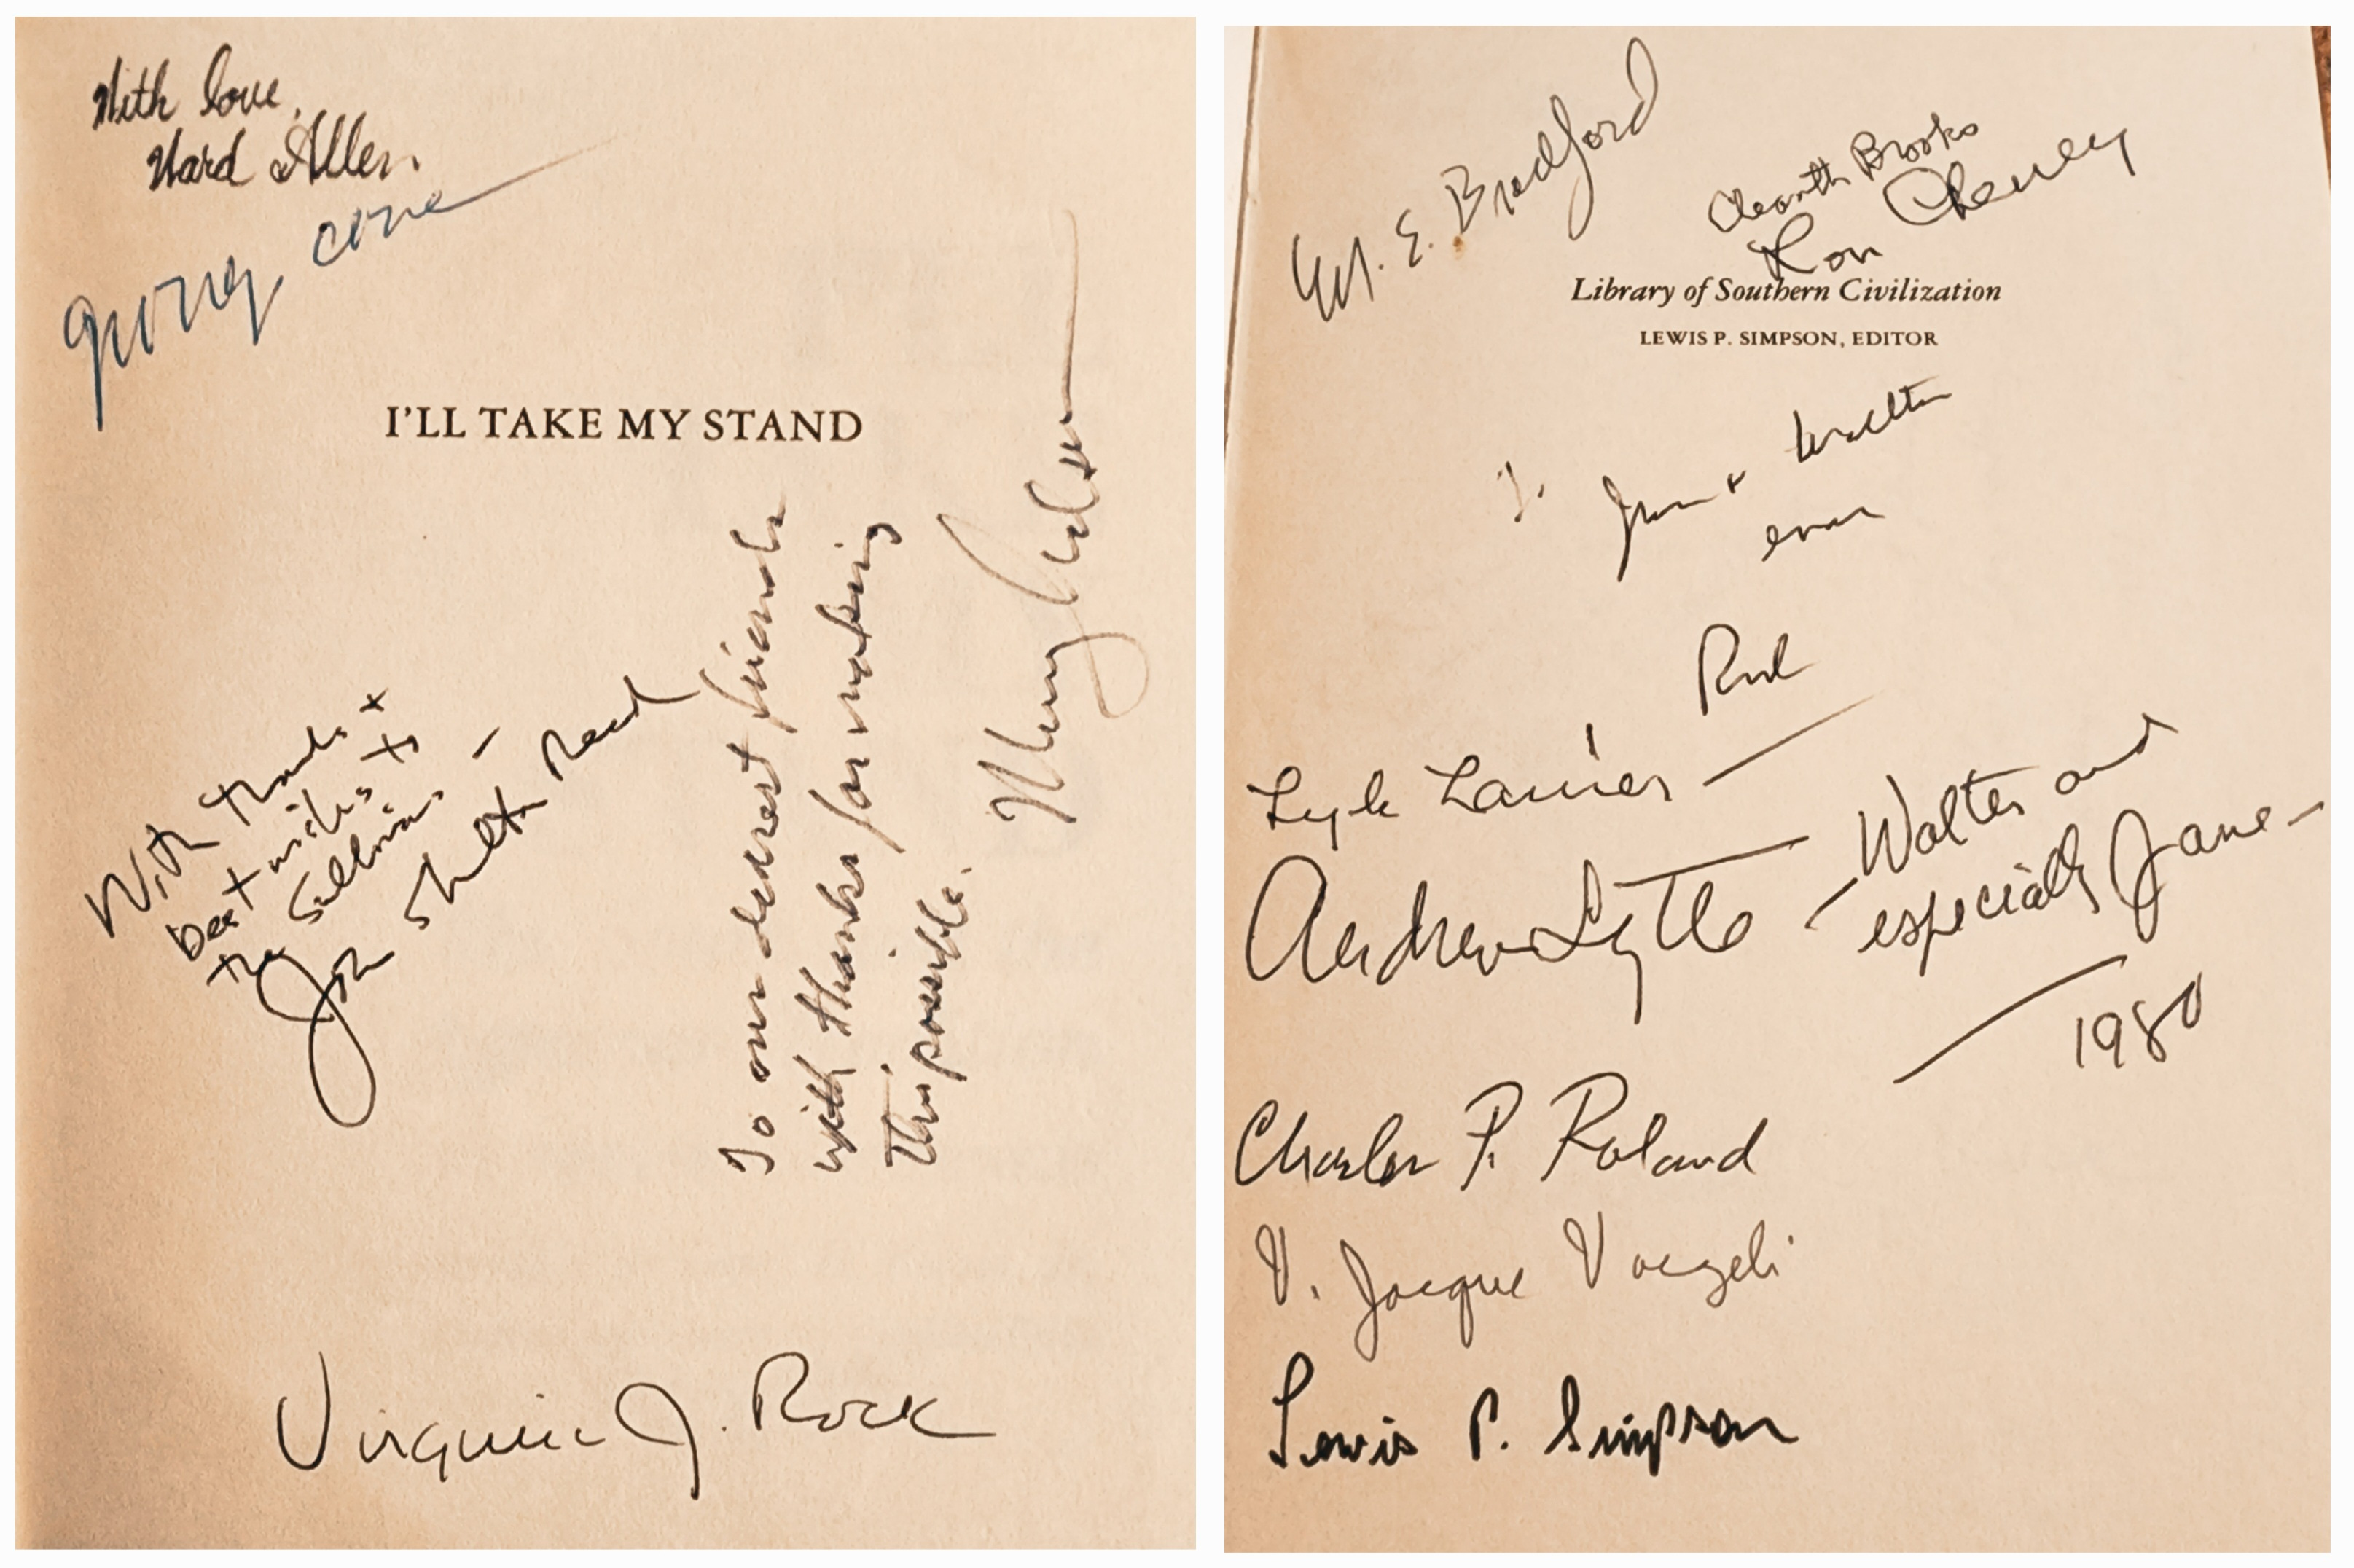 With love,
Ward Allen.
George Core
I'LL TAKE MY STAND
With thanks +
best wishes to
the Sullivans —
John Shelton Reed
To our dearest friends
with thanks for making
this possible.
Virginia J. Rock
M. E. Bradford
Cleanth Brooks
Lon Cheney
Library of Southern Civilization
LEWIS P. SIMPSON, EDITOR
Jane + Walter
ever
Red
Lyle Lanier —
Andrew Lytle — Walter and
especially Jane —
1980
Charles P. Roland
V. Jacque Voegeli
Lewis P. Simpson